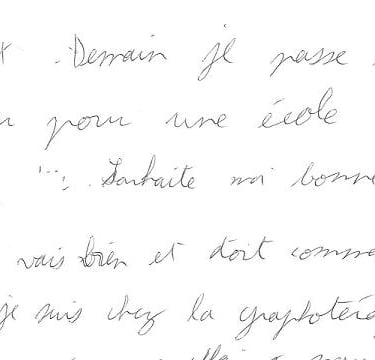 . Demain je passe
pour une école
Souhaite moi bonne
vais bien et doit comme
je suis chez la graphothéra